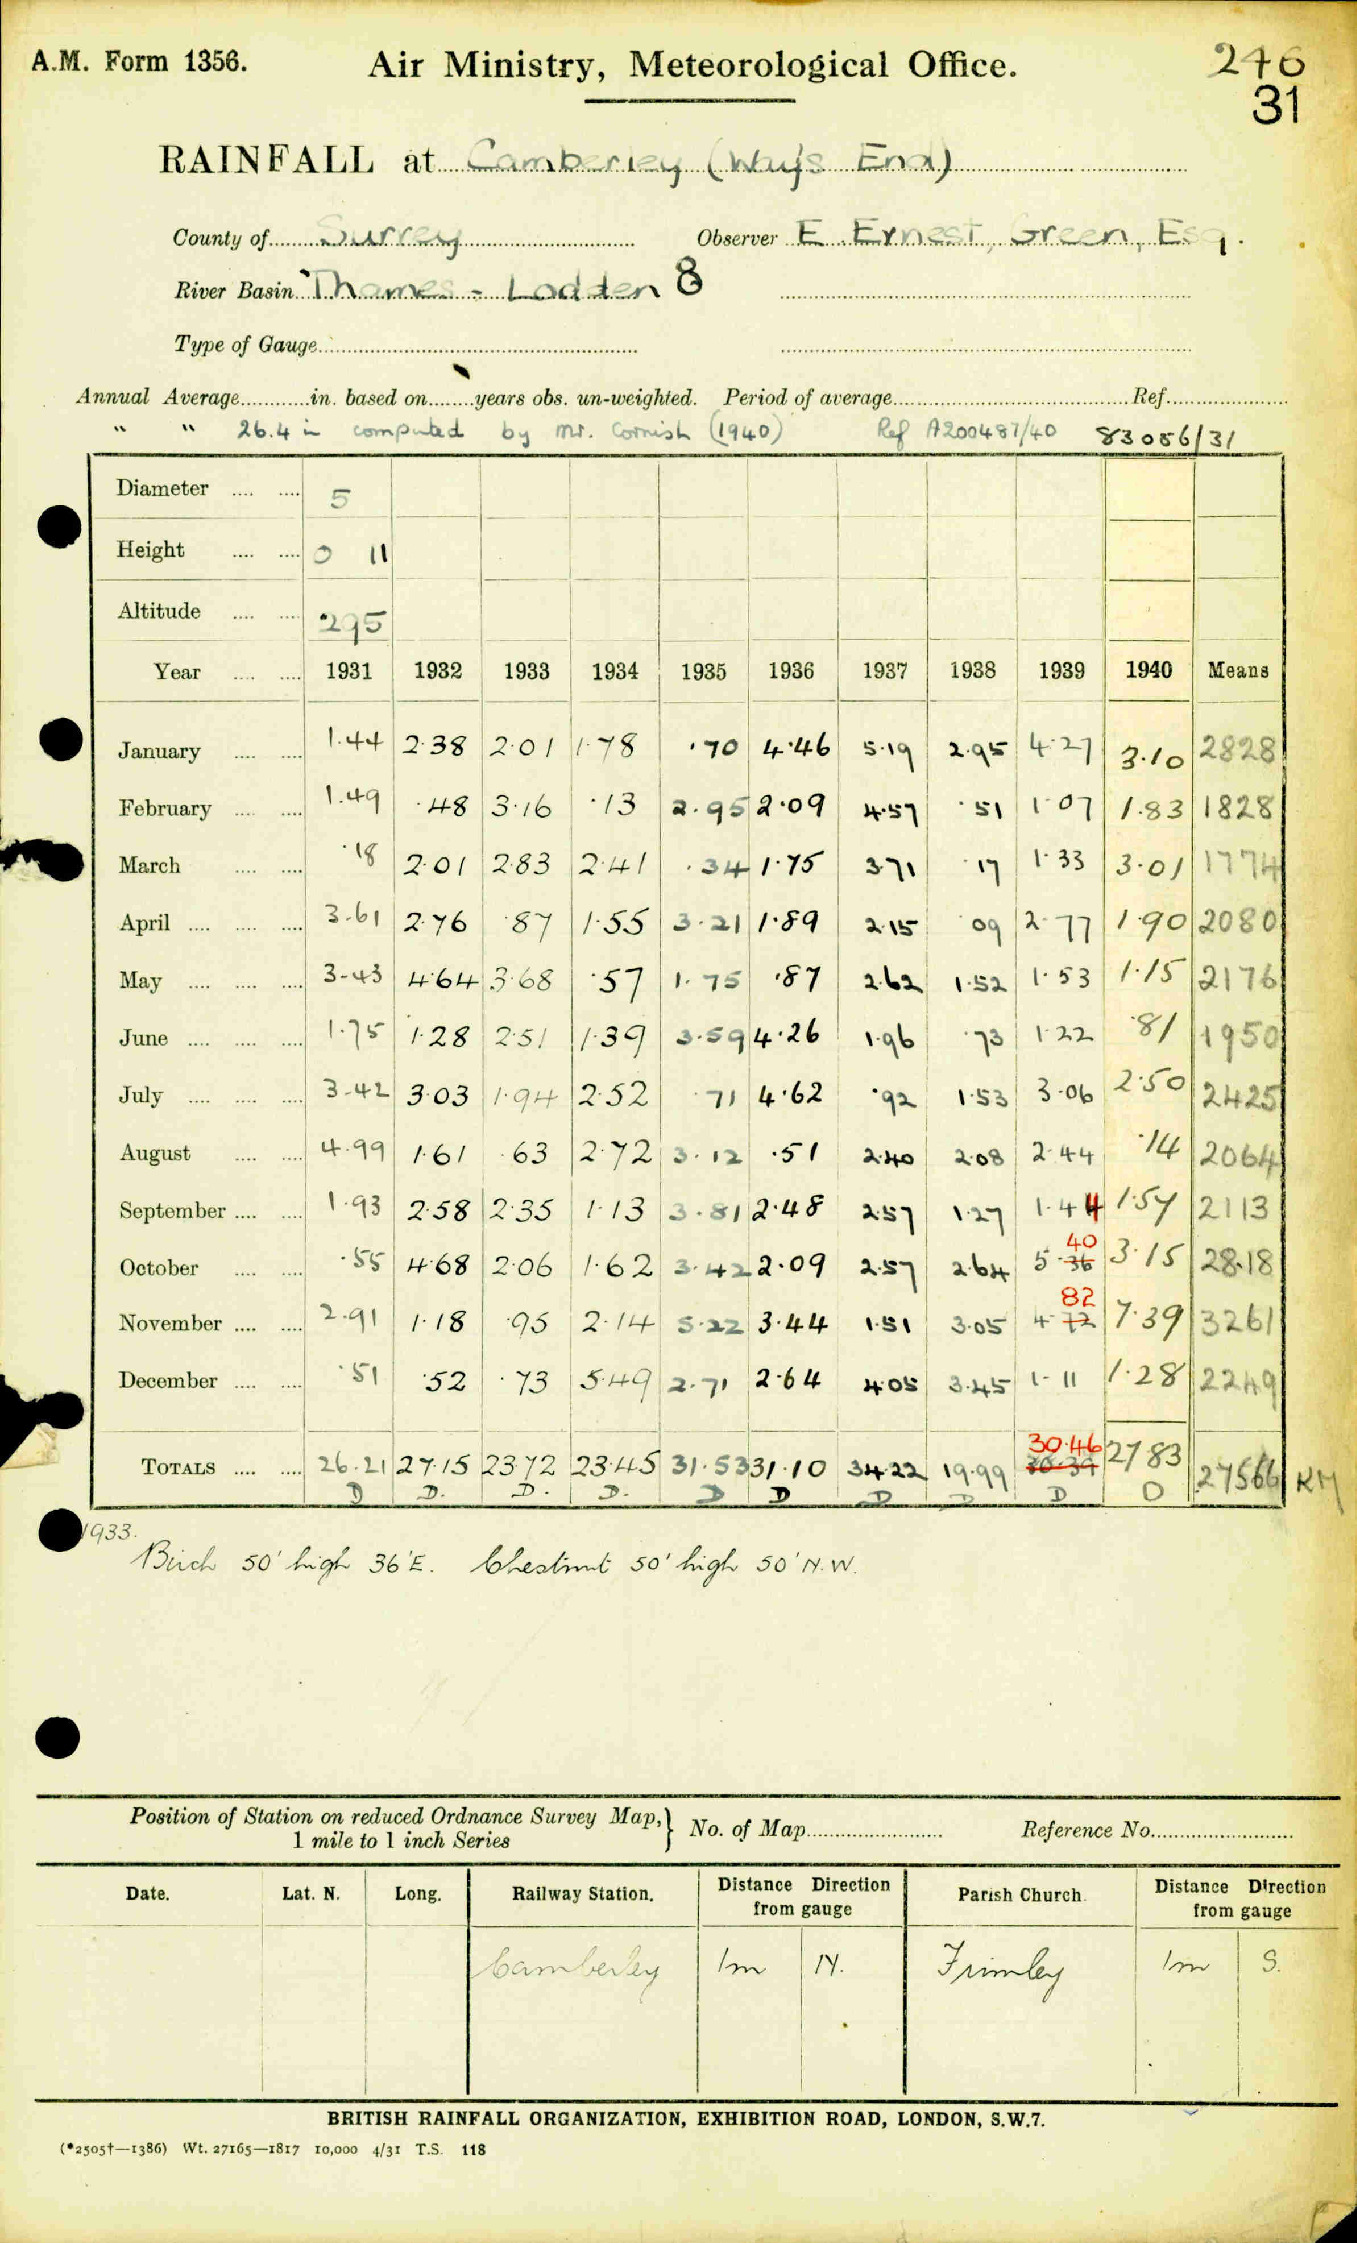 A.M. Form 1356.
Air Ministry, Meteorological Office.
246
31
RAINFALL at Camberley (Way's End)
County of Surrey Observer E Ernest, Green, Esq.
River Basin Thames - Lodden 8
Type of Gauge
Annual Average in. based on years obs. un-weighted. Period of average Ref.
" " 26.4 in computed by Mr. Cornish (1940) Ref A200487/40 83086/31
Diameter 5
Height 0 11
Altitude 295
Year 1931 1932 1933 1934 1935 1936 1937 1938 1939 1940 Means
January 1.44 2.38 2.01 1.78 .70 4.46 5.19 2.95 4.27 3.10 2828
February 1.49 .48 3.16 .13 2.95 2.09 4.57 .51 1.07 1.83 1828
March .18 2.01 2.83 2.41 .34 1.75 3.71 .17 1.33 3.01 1774
April 3.61 2.76 .87 1.55 3.21 1.89 2.15 .09 2.77 1.90 2080
May 3.43 4.64 3.68 .57 1.75 .87 2.62 1.52 1.53 1.15 2176
June 1.75 1.28 2.51 1.39 3.59 4.26 1.96 .73 1.22 .81 1950
July 3.42 3.03 1.94 2.52 .71 4.62 .92 1.53 3.06 2.50 2425
August 4.99 1.61 .63 2.72 3.12 .51 2.40 2.08 2.44 .14 2064
September 1.93 2.58 2.35 1.13 3.81 2.48 2.57 1.27 1.44 1.57 2113
40
October .55 4.68 2.06 1.62 3.42 2.09 2.57 2.64 5.36 3.15 28.18
82
November 2.91 1.18 .95 2.14 5.22 3.44 1.51 3.05 4.72 7.39 3261
December .51 .52 .73 5.49 2.71 2.64 4.05 3.45 1.11 1.28 2249
30.46
TOTALS 26.21 27.15 23.72 23.45 31.53 31.10 34.22 19.99 30.39 27.83 27566 KM
D D. D. D. D D D D D D
1933.
Birch 50' high 36' E. Chestnut 50' high 50' N.W.
Position of Station on reduced Ordnance Survey Map,
1 mile to 1 inch Series
No. of Map Reference No.
Date. Lat. N. Long. Railway Station. Distance Direction from gauge Parish Church. Distance Direction from gauge
Camberley 1m N. Frimley 1m S.
BRITISH RAINFALL ORGANIZATION, EXHIBITION ROAD, LONDON, S.W.7.
(*2505†—1386) Wt. 27165—1817 10,000 4/31 T.S. 118